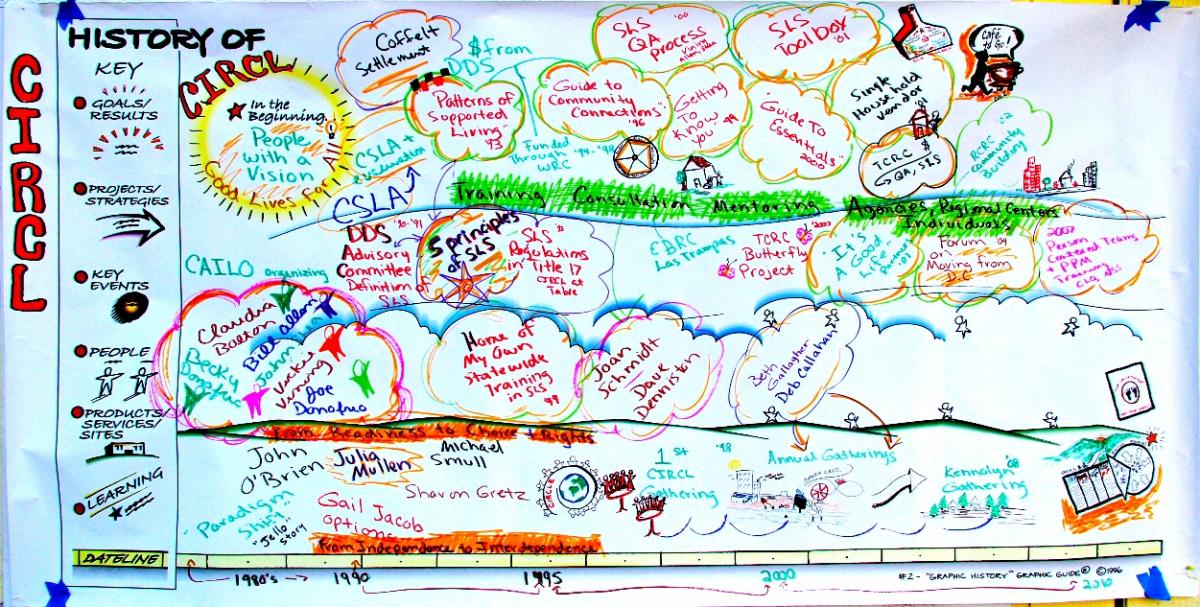 CIRCL
HISTORY OF
CIRCL
KEY
GOALS/
RESULTS
PROJECTS/
STRATEGIES
KEY
EVENTS
PEOPLE
PRODUCTS/
SERVICES/
SITES
LEARNING
DATELINE
In the
Beginning...
People
with a
Vision
Good Lives for All!
Coffelt
Settlement
$ from
DDS
CSLA +
evaluation
CSLA
Patterns of
Supported
Living"
'93
Funded '94-'98
Through
WRC
Guide to
Community
Connections"
'96
"Getting
To
Know
you" '99
SLS '00
QA
process
SLS
Toolbox
'01
"Guide To
Essentials"
2000
Single
Household
vendor '01
TCRC $
QA, SLS
Café
to Go!
'02
RCRC
Community
Building
Training Consultation Mentoring
Agencies, Regional Centers
Individuals
DDS '90-'91
Advisory
Committee
Definition of
SLS
5 principles
of SLS
SLS
Regulations
in Title 17
CIRCL at
Table
EBRC
Las Trampas
TCRC 2003
Butterfly
Project
"It's
A Good
Life"
Forum '04
on
Moving from
D.C.
2007
Person
Centered Teams
+ PPM
Training
CLQ, DSS
CAILO organizing
Claudia
Bolton
Bill Allen
Becky
Donofrio
John
Shea
Vickie
Vining
Joe
Donofrio
Home of
My Own
Statewide
Training
in SLS
'99
Joan
Schmidt
Dave
Denniston
Beth
Gallagher
Deb Callahan
From Readiness to Choice + Rights
John
O'Brien
Julia
Mullen
Michael
Smull
"Paradigm
Shift"
"Jello"
story
Gail Jacob
options
Sharon Gretz
CIRCLE
1st '98
CIRCL
Gathering
Annual Gatherings
SANTA CRUZ
Kennolyn '08
Gathering
From Independence to Interdependence
1980's
1990
1995
2000
2010
#2 - "GRAPHIC HISTORY" GRAPHIC GUIDE® ©1996